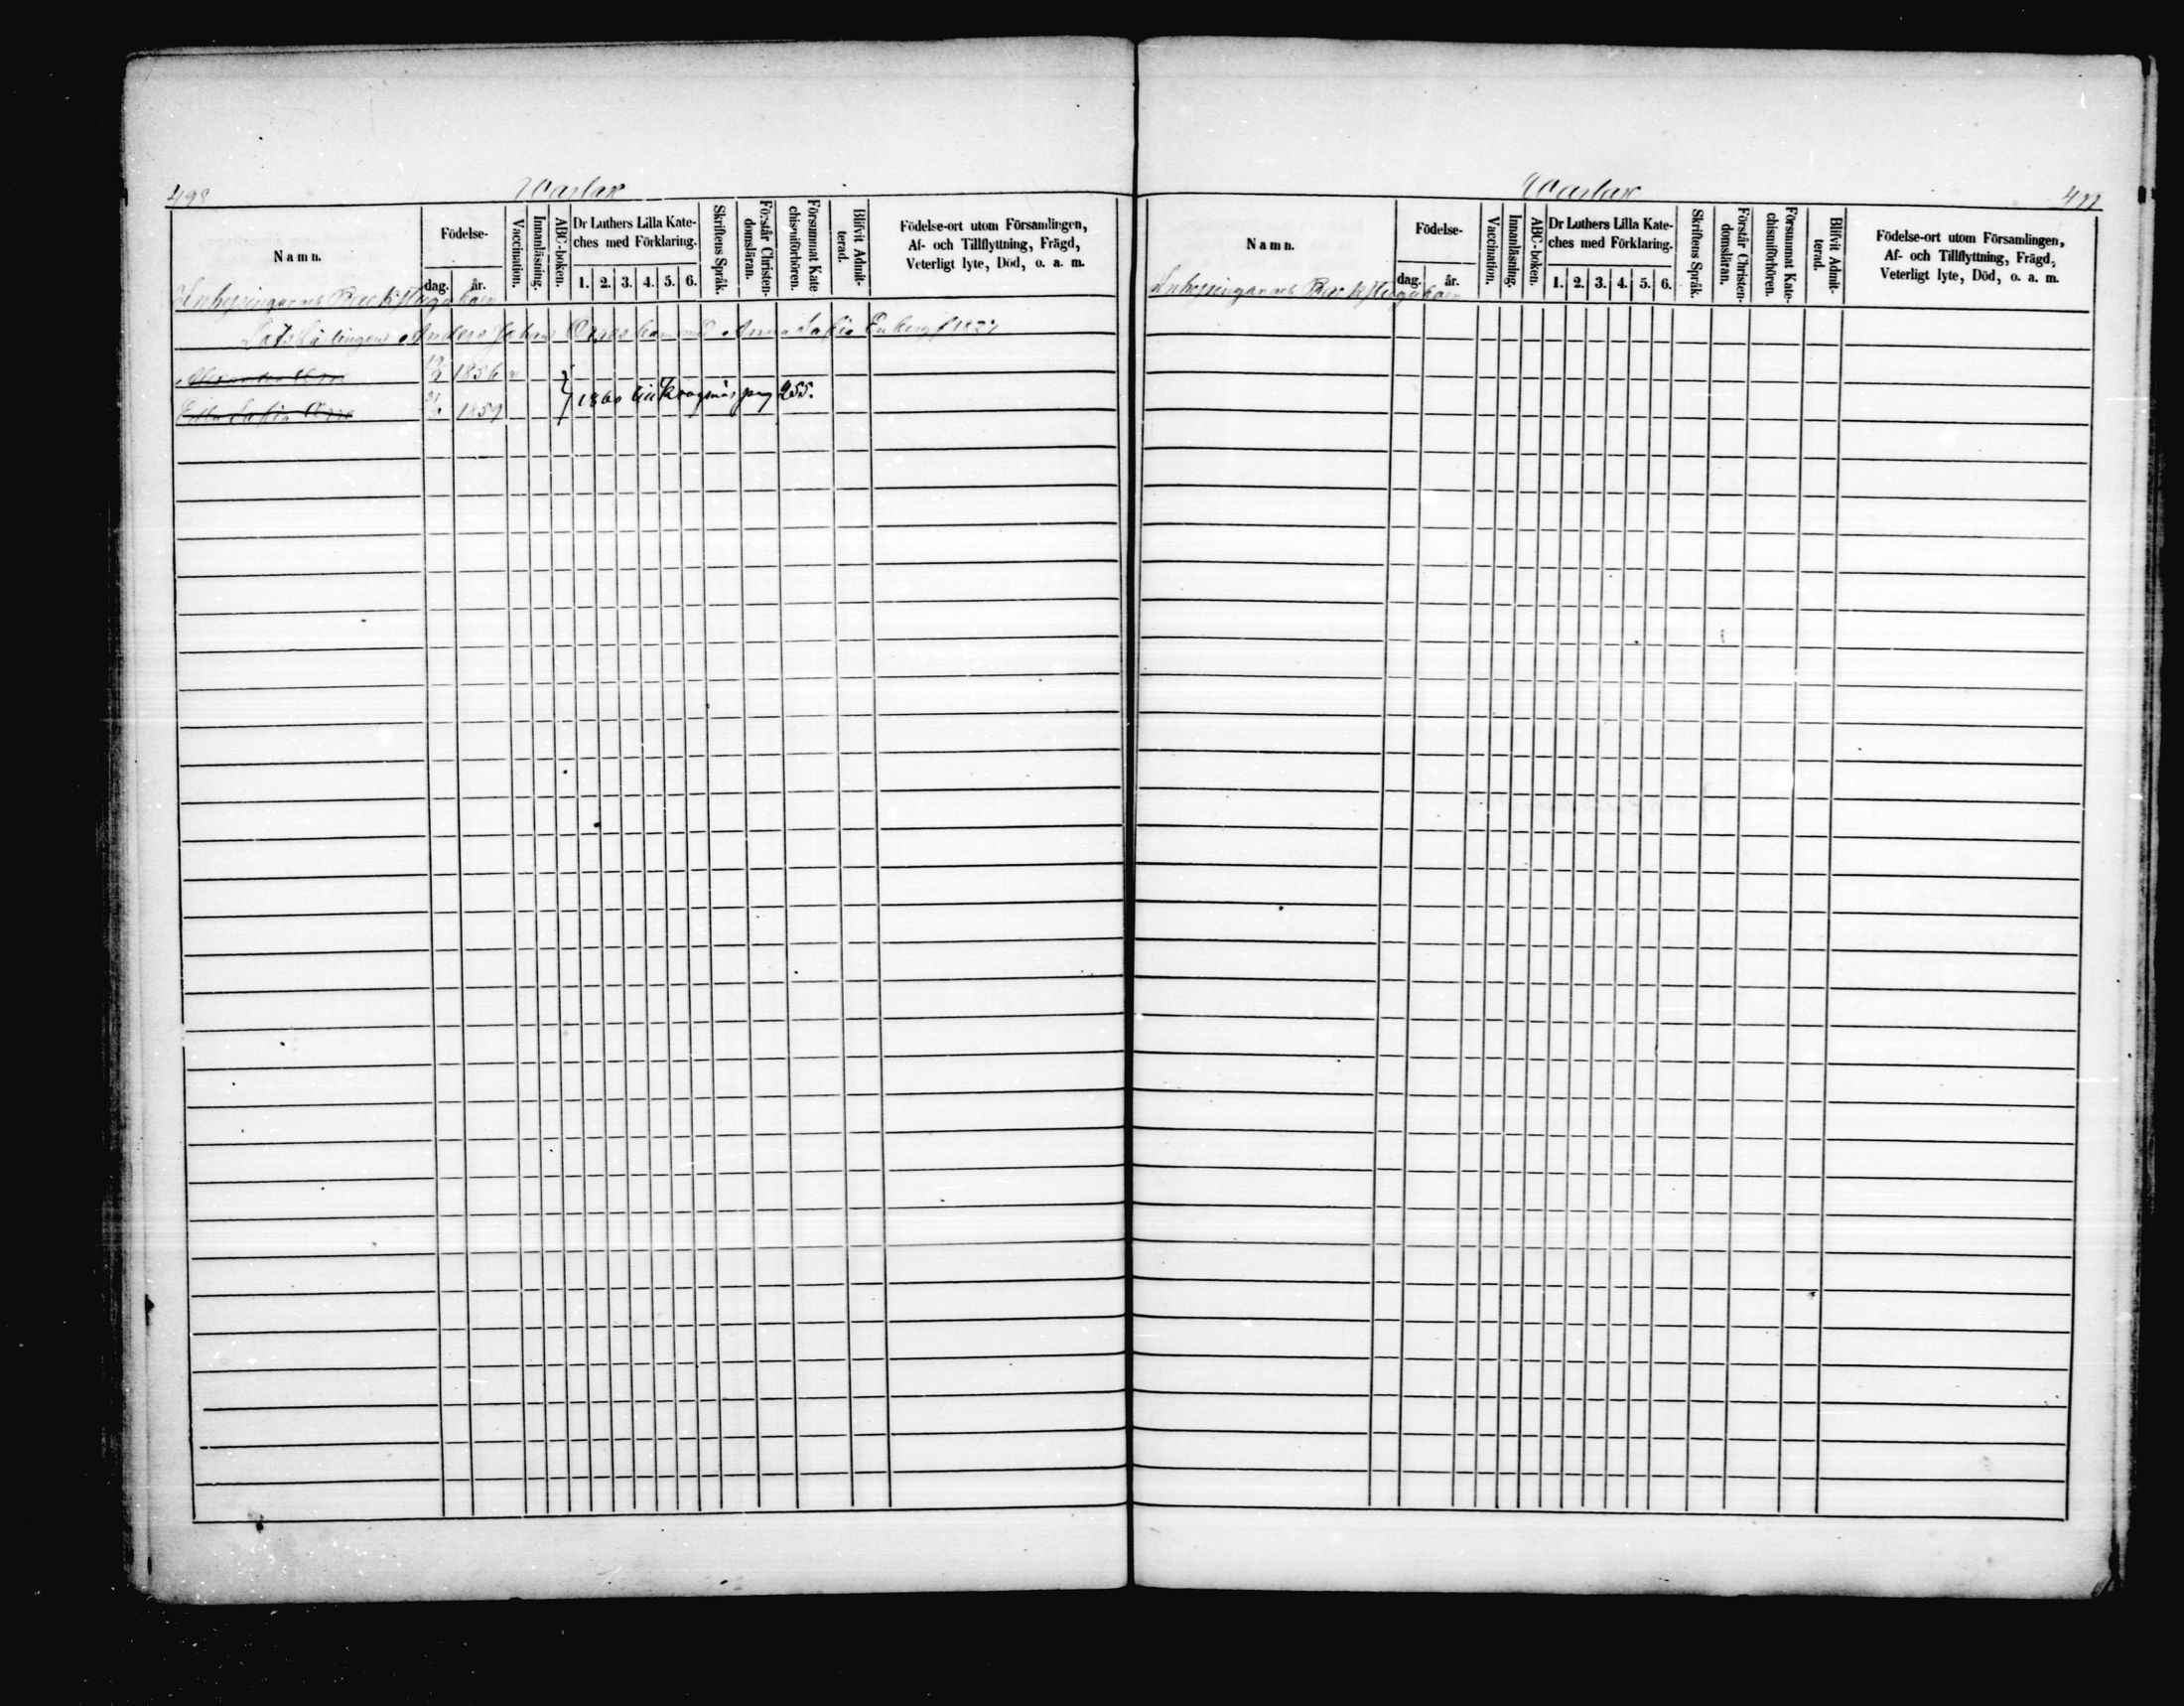 498
Warlax
Namn.
Födelse-
dag.
år.
Vaccination.
Innanläsning.
ABC-boken.
Dr Luthers Lilla Kate-
ches med Förklaring.
1. 2. 3. 4. 5. 6.
Skriftens Språk.
Förstår Christen-
domsläran.
Försummat Kate-
chismiförhören.
Blifvit Admit-
terad.
Födelse-ort utom Församlingen,
Af- och Tillflyttning, Frägd,
Veterligt lyte, Död, o. a. m.
Inhysingarnes Backstugubarn
Anders Johan barn med Anna Sofia Enberg f 1831
Alexander 1856
1860 till Kragnäs pag 255.
Edla Sofia 1859
Warlax
499
Namn.
Födelse-
dag.
år.
Vaccination.
Innanläsning.
ABC-boken.
Dr Luthers Lilla Kate-
ches med Förklaring.
1. 2. 3. 4. 5. 6.
Skriftens Språk.
Förstår Christen-
domsläran.
Försummat Kate-
chismiförhören.
Blifvit Admit-
terad.
Födelse-ort utom Församlingen,
Af- och Tillflyttning, Frägd,
Veterligt lyte, Död, o. a. m.
Inhysingarnes Backstugubarn